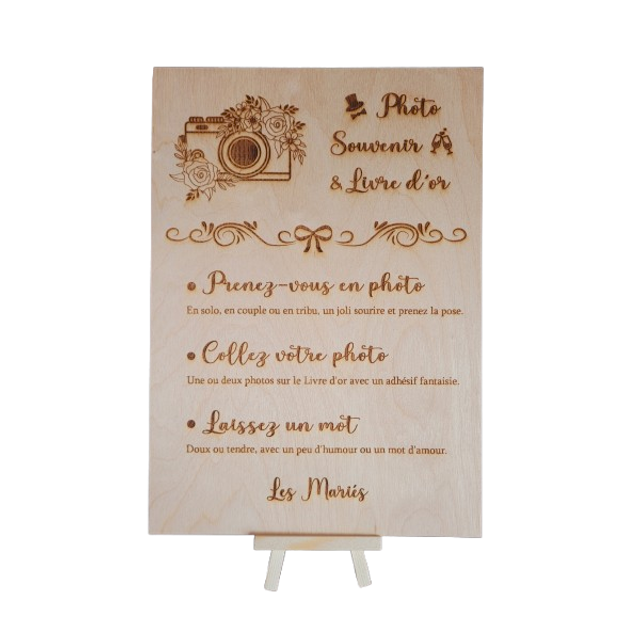 Photo
Souvenir
& Livre d'or
Prenez-vous en photo
En solo, en couple ou en tribu, un joli sourire et prenez la pose.
Collez votre photo
Une ou deux photos sur le Livre d'or avec un adhésif fantaisie.
Laissez un mot
Doux ou tendre, avec un peu d'humour ou un mot d'amour.
Les Mariés